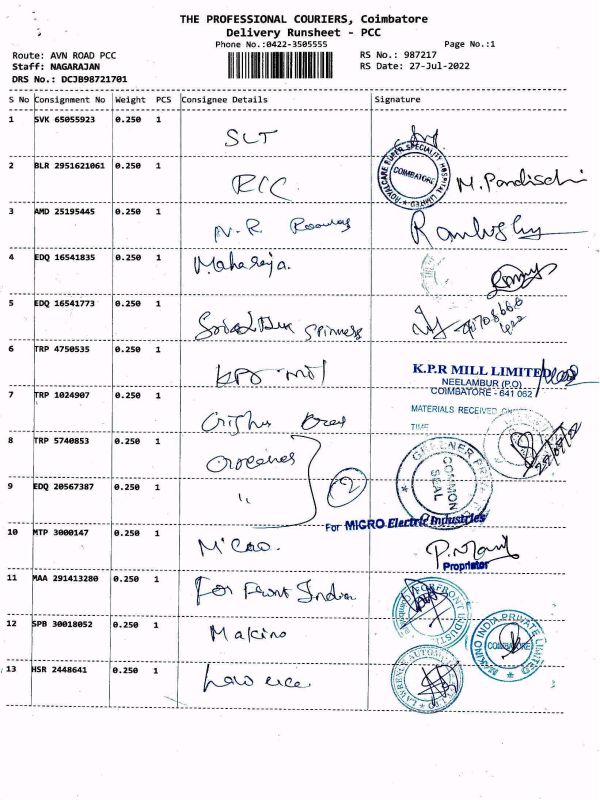 THE PROFESSIONAL COURIERS, Coimbatore
Delivery Runsheet - PCC
Phone No.:0422-3505555 Page No.:1
Route: AVN ROAD PCC RS No.: 987217
Staff: NAGARAJAN RS Date: 27-Jul-2022
DRS No.: DCJB98721701
S No Consignment No Weight PCS Consignee Details Signature
1 SVK 65055923 0.250 1 SLT
2 BLR 2951621061 0.250 1 RCC ROYALCARE SUPER SPECIALITY HOSPITAL LIMITED COIMBATORE
3 AMD 25195445 0.250 1 N.R
4 EDQ 16541835 0.250 1 Maharaja.
5 EDQ 16541773 0.250 1 spinners
6 TRP 4750535 0.250 1 KPR mill K.P.R MILL LIMITED
NEELAMBUR (P.O)
COIMBATORE - 641 062
MATERIALS RECEIVED ON
TIME
7 TRP 1024907 0.250 1
8 TRP 5740853 0.250 1 COMMON SEAL
9 EDQ 20567387 0.250 1 " 2
For MICRO Electric Industries
10 MTP 3000147 0.250 1 Micro.
Proprietor
11 MAA 291413280 0.250 1 For Front India
12 SPB 30018052 0.250 1 Makino MAKINO INDIA PRIVATE LIMITED COIMBATORE
13 HSR 2448641 0.250 1 Lawrence LAWRENCE